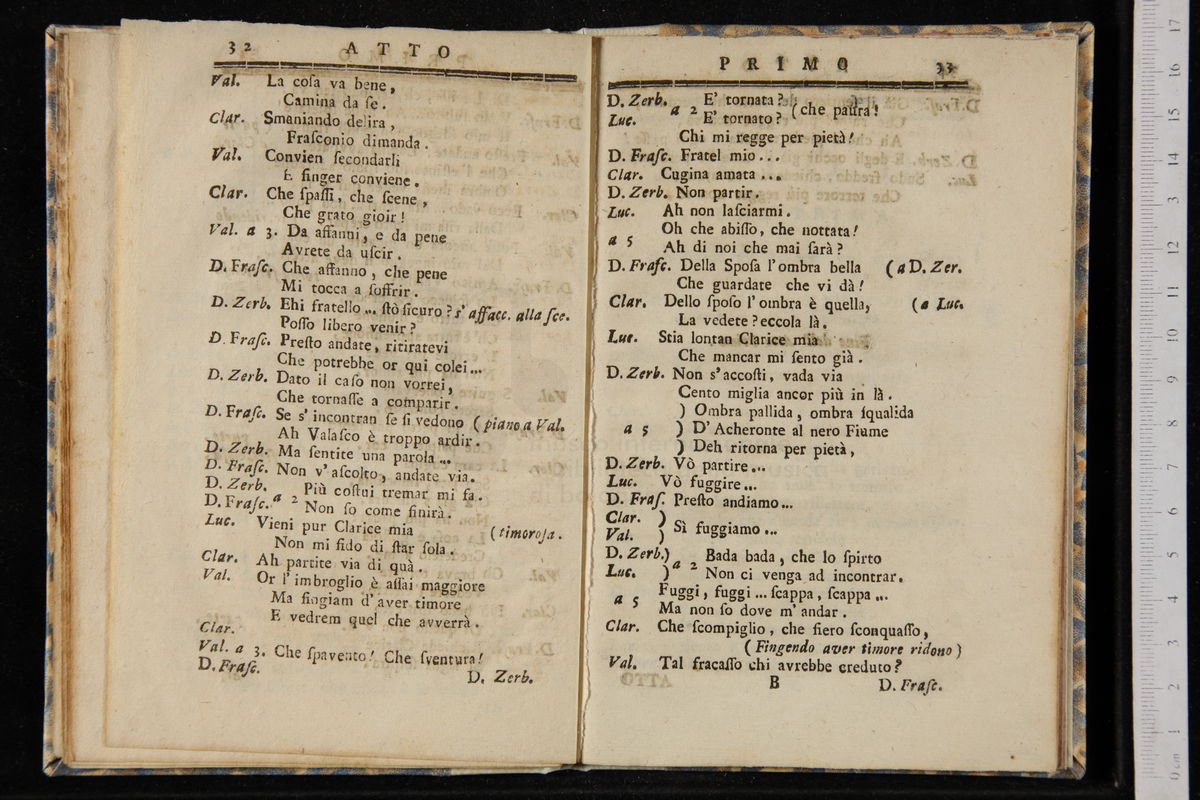 32 ATTO
Val. La coſa va bene,
Camina da ſe.
Clar. Smaniando delira,
Fraſconio dimanda.
Val. Convien ſecondarli
E finger conviene.
Clar. Che ſpaſſi, che ſcene,
Che grato gioir!
Val. a 3. Da affanni, e da pene
Avrete da uſcir.
D. Fraſc. Che affanno, che pene
Mi tocca a ſoffrir.
D. Zerb. Ehi fratello ... ſtò ſicuro? s' affacc. alla ſce.
Poſſo libero venir?
D. Fraſc. Preſto andate, ritiratevi
Che potrebbe or qui colei...
D. Zerb. Dato il caſo non vorrei,
Che tornaſſe a comparir.
D. Fraſc. Se s' incontran ſe ſi vedono (piano a Val.
Ah Valaſco è troppo ardir.
D. Zerb. Ma ſentite una parola ...
D. Fraſc. Non v' aſcolto, andate via.
D. Zerb. Più coſtui tremar mi fa.
D. Fraſc. a 2 Non ſo come finirà.
Luc. Vieni pur Clarice mia (timoroſa.
Non mi fido di ſtar ſola.
Clar. Ah partite via di quà.
Val. Or l' imbroglio è aſſai maggiore
Ma fingiam d' aver timore
E vedrem quel che avverrà.
Clar.
Val. a 3. Che ſpavento! Che ſventura!
D. Fraſc.
D. Zerb.
PRIMO 33
D. Zerb. a 2 E' tornata? (che paura!
Luc. E' tornato?
Chi mi regge per pietà!
D. Fraſc. Fratel mio...
Clar. Cugina amata ...
D. Zerb. Non partir.
Luc. Ah non laſciarmi.
Oh che abiſſo, che nottata!
a 5 Ah di noi che mai ſarà?
D. Fraſc. Della Spoſa l' ombra bella (a D. Zer.
Che guardate che vi dà!
Clar. Dello ſpoſo l' ombra è quella, (a Luc.
La vedete? eccola là.
Luc. Stia lontan Clarice mia
Che mancar mi ſento già.
D. Zerb. Non s' accoſti, vada via
Cento miglia ancor più in là.
) Ombra pallida, ombra ſqualida
a 5 ) D' Acheronte al nero Fiume
) Deh ritorna per pietà,
D. Zerb. Vò partire...
Luc. Vò fuggire...
D. Fraſ. Preſto andiamo...
Clar. )
Val. ) Sì fuggiamo...
D. Zerb.) a 2 Bada bada, che lo ſpirto
Luc. ) Non ci venga ad incontrar.
a 5 Fuggi, fuggi ... ſcappa, ſcappa ...
Ma non ſo dove m' andar.
Clar. Che ſcompiglio, che fiero ſconquaſſo,
(Fingendo aver timore ridono)
Val. Tal fracaſſo chi avrebbe creduto?
B D. Fraſc.